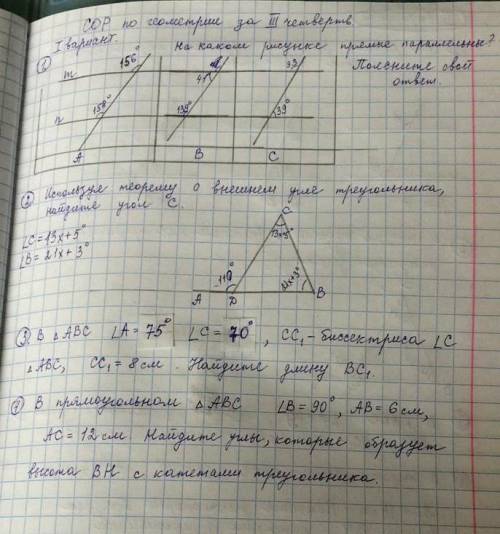 СОР по геометрии за III четверть
I вариант.
① На каком рисунке прямые параллельны?
Поясните свой
ответ.
m 156°
n 158°
A
41°
139°
B
39°
C
② Используя теорему о внешнем угле треугольника,
найдите угол C.
∠C=13x+5°
∠B=21x+3°
C
13x+5°
110°
21x+3°
A D B
③ В △ABC ∠A=75° ∠C=70°, CC₁-биссектриса ∠C
△ABC, CC₁=8см. Найдите длину BC₁.
④ В прямоугольном △ABC ∠B=90°, AB=6см,
AC=12см. Найдите углы, которые образует
высота BH с катетами треугольника.